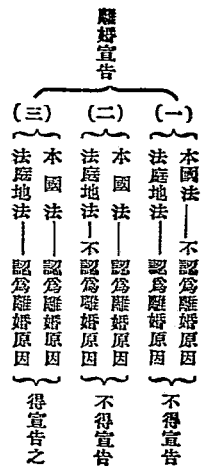 離婚宣告
(一)
本國法——不認爲離婚原因
法庭地法——認爲離婚原因
不得宣告
(二)
本國法——認爲離婚原因
法庭地法—不認爲離婚原因
不得宣告
(三)
本國法——認爲離婚原因
法庭地法——認爲離婚原因
得宣告之